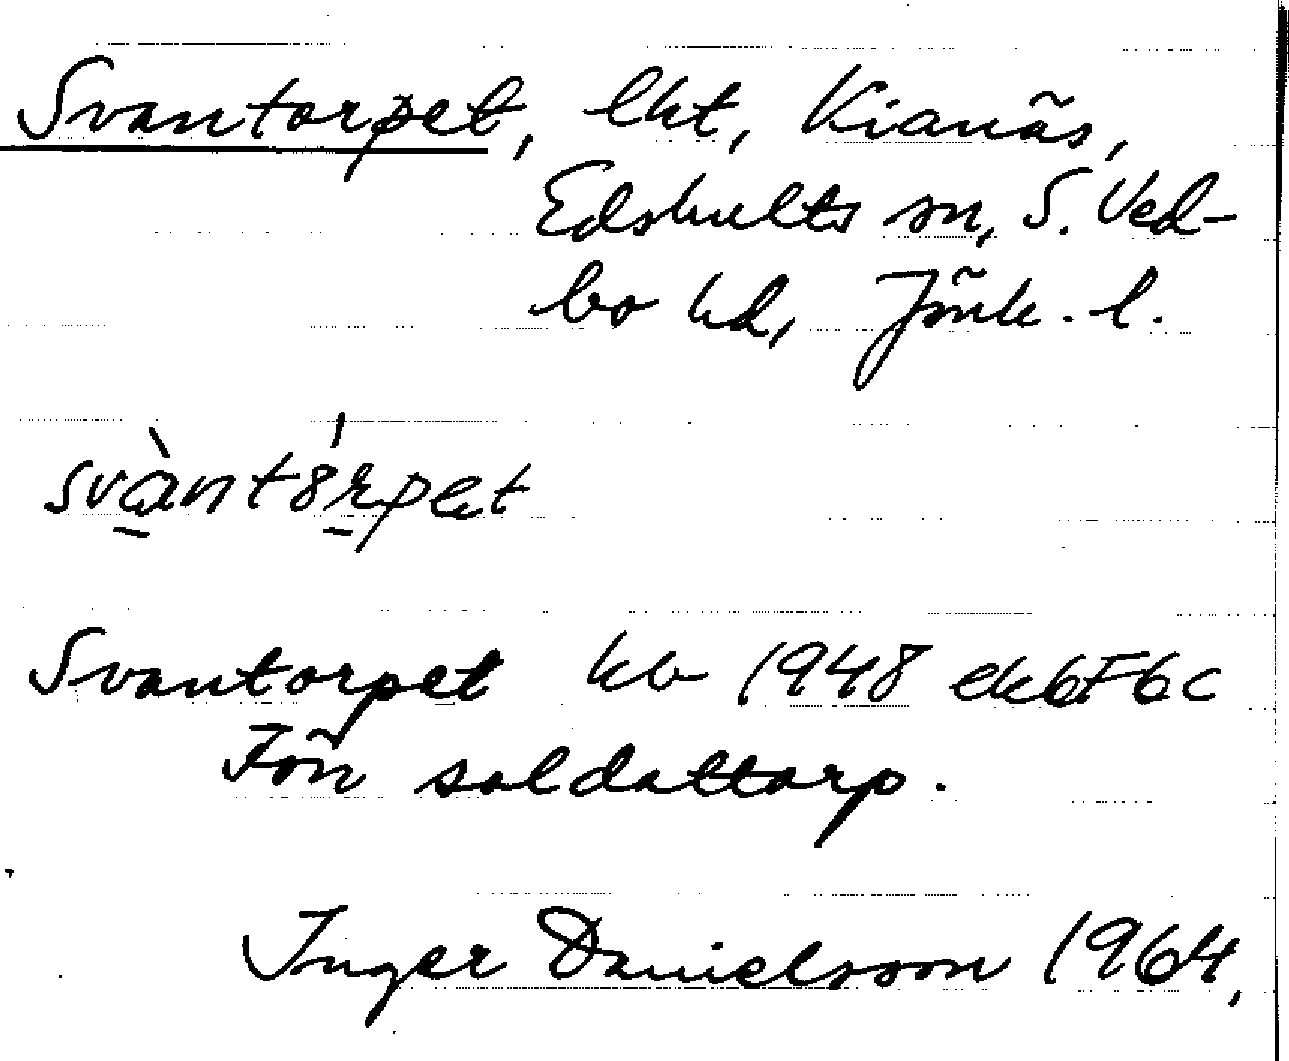 Svantorpet, lht, Kianäs,
Edshults sn, S. Ved-
bo hd, Jönk. l.
svàntórpet
Svantorpet kb 1948 ekbF6c
Fön soldattorp.
Inger Danielsson 1964,